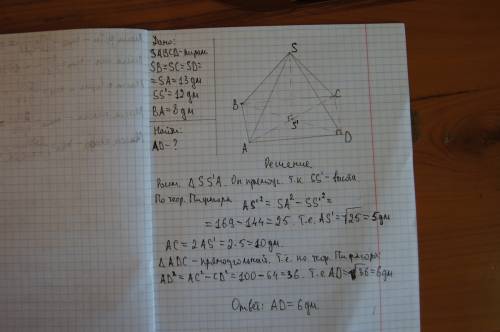 Дано:
SABCD-пирам.
SB=SC=SD=
=SA=13дм
SS'=12дм
BA=8дм
Найти:
AD-?
S
B
C
S'
A
D
Решение
Рассм. △SS'A. Он прямоуг. т.к. SS'-высота
По теор. Пифагора AS'²= SA²-SS'²=
=169-144=25. Т.е. AS'=√25=5дм
AC=2AS'=2·5=10дм.
△ADC-прямоугольный. Т.е. по теор. Пифагора:
AD²=AC²-CD²=100-64=36. Т.е. AD=√36=6дм
Ответ: AD=6дм.